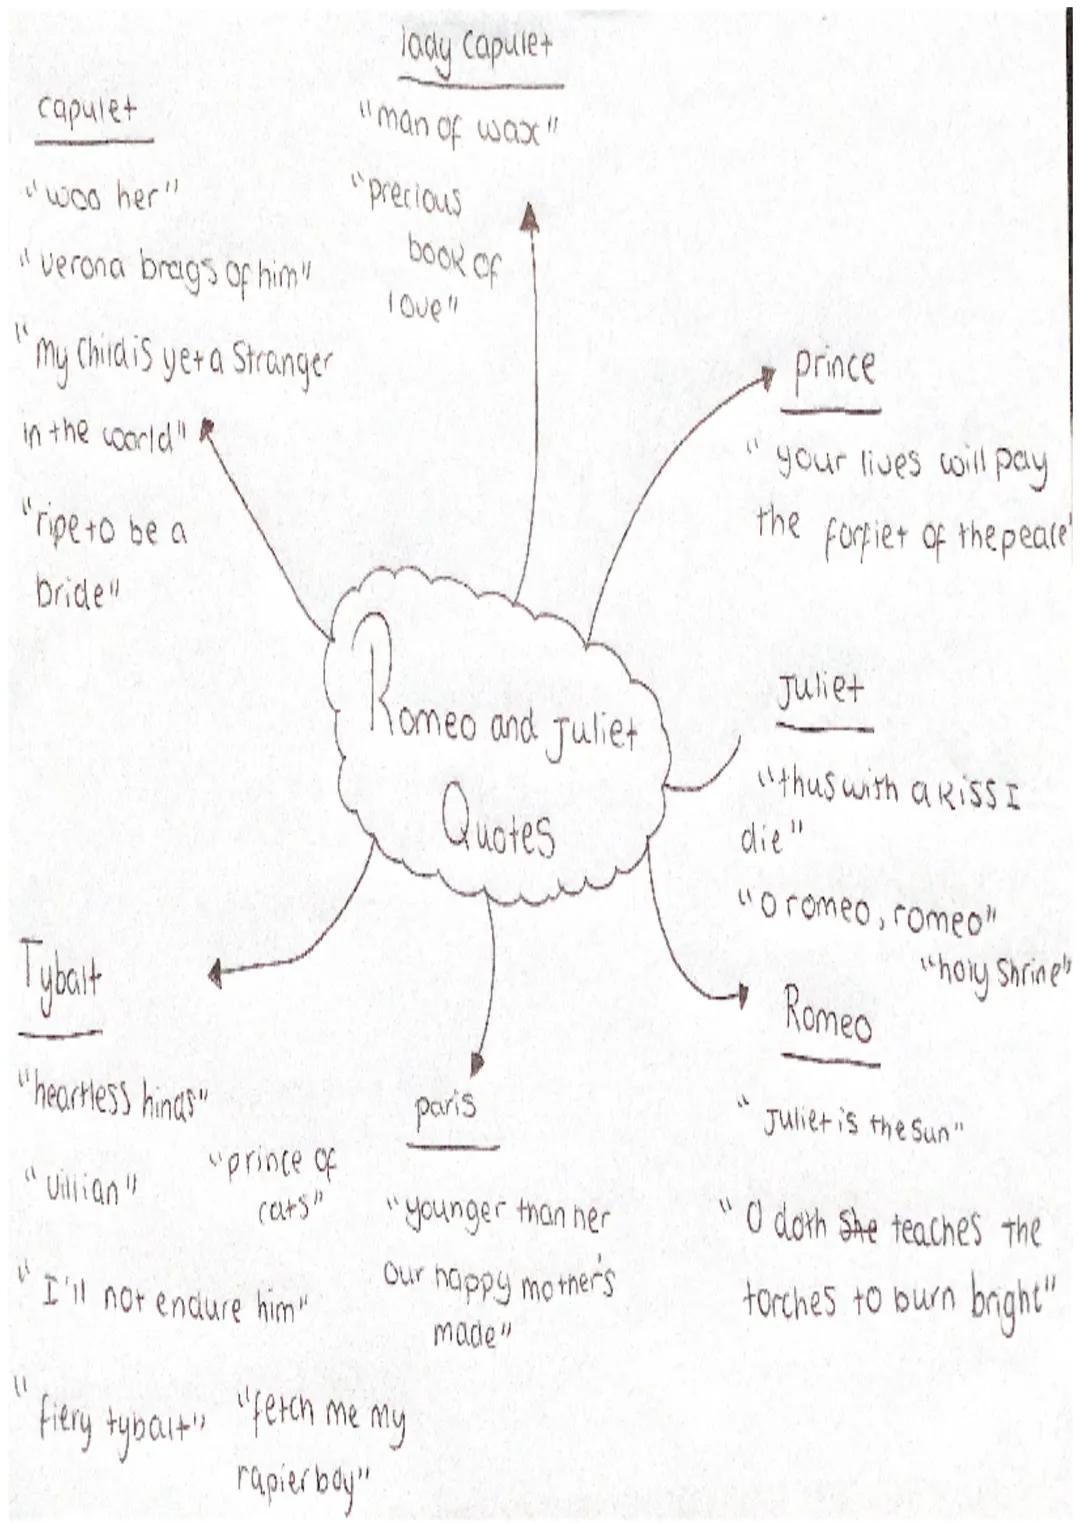 lady Capulet
"man of wax"
"precious
book of
love"
capulet
"woo her"
"verona brags of him"
"my Child is yet a Stranger
in the world"
"ripe to be a
bride"
prince
"your lives will pay
the forfiet of the peace"
Romeo and Juliet
Quotes
Juliet
"thus with a kiss I
die"
"O romeo, romeo"
"holy Shrine"
Romeo
"Juliet is the sun"
"O doth She teaches the
torches to burn bright"
Tybalt
"heartless hinds"
"villian"
"prince of
cats"
"I'll not endure him"
"fiery tybalt"
"fetch me my
rapier boy"
paris
"younger than her
our happy mother's
made"